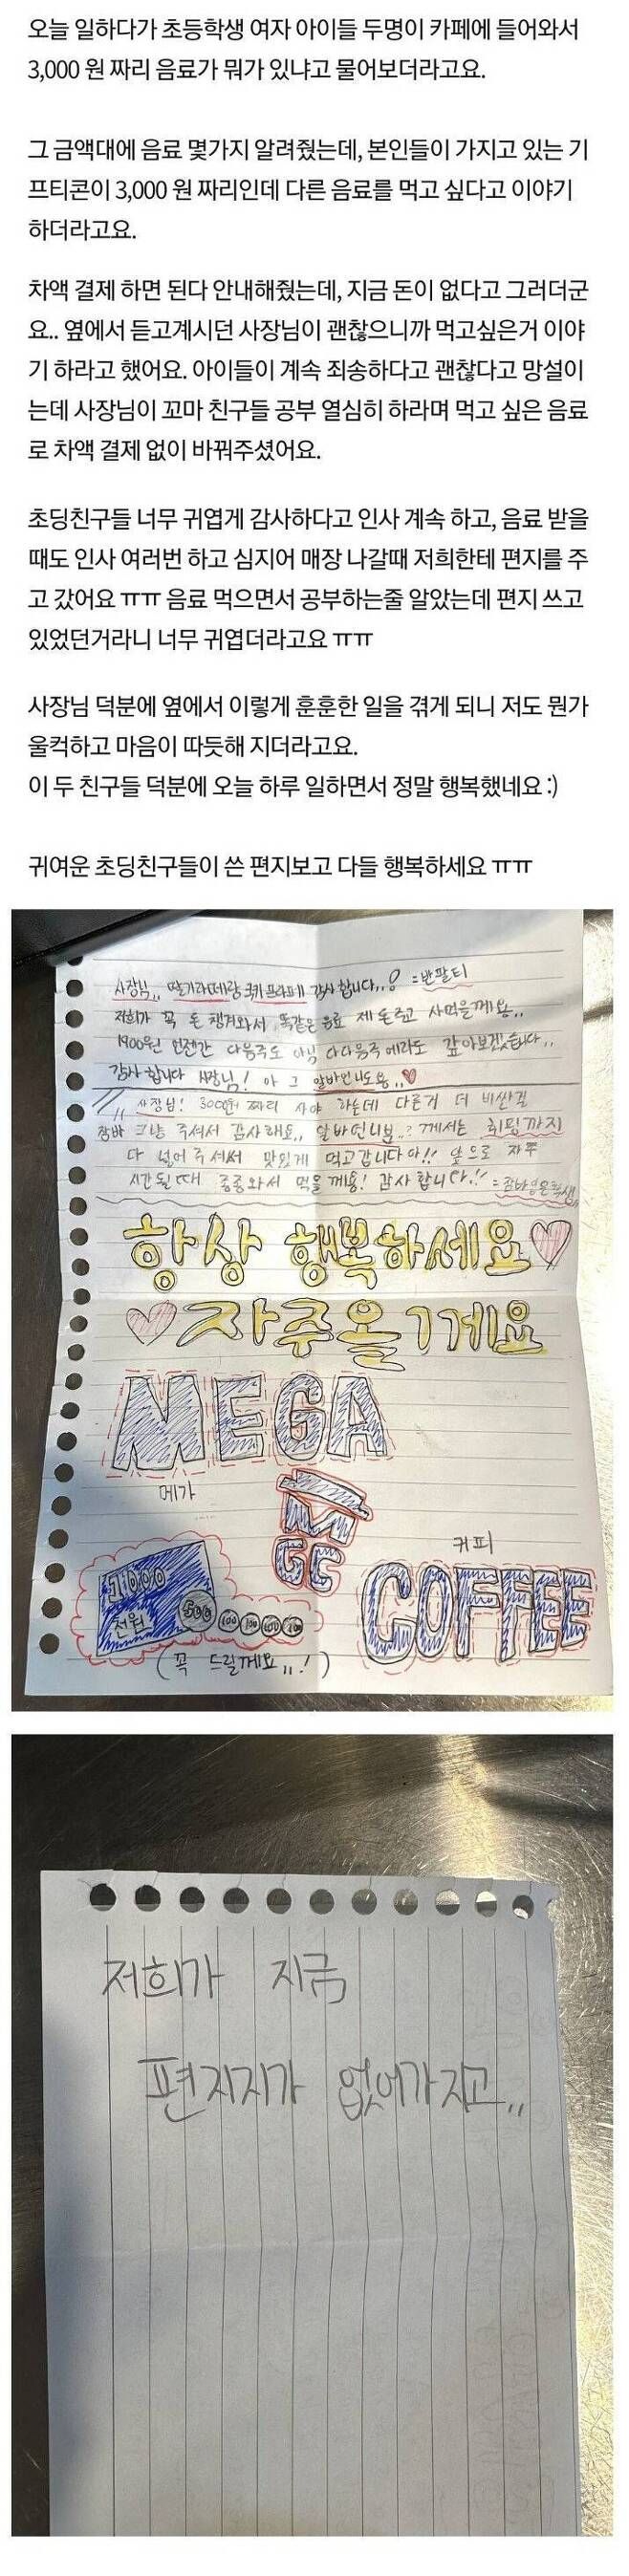 오늘 일하다가 초등학생 여자 아이들 두명이 카페에 들어와서
3,000 원 짜리 음료가 뭐가 있냐고 물어보더라고요.
그 금액대에 음료 몇가지 알려줬는데, 본인들이 가지고 있는 기
프티콘이 3,000 원 짜리인데 다른 음료를 먹고 싶다고 이야기
하더라고요.
차액 결제 하면 된다 안내해줬는데, 지금 돈이 없다고 그러더군
요.. 옆에서 듣고계시던 사장님이 괜찮으니까 먹고싶은거 이야
기 하라고 했어요. 아이들이 계속 죄송하다고 괜찮다고 망설이
는데 사장님이 꼬마 친구들 공부 열심히 하라며 먹고 싶은 음료
로 차액 결제 없이 바꿔주셨어요.
초딩친구들 너무 귀엽게 감사하다고 인사 계속 하고, 음료 받을
때도 인사 여러번 하고 심지어 매장 나갈때 저희한테 편지를 주
고 갔어요 ㅠㅠ 음료 먹으면서 공부하는줄 알았는데 편지 쓰고
있었던거라니 너무 귀엽더라고요 ㅠㅠ
사장님 덕분에 옆에서 이렇게 훈훈한 일을 겪게 되니 저도 뭔가
울컥하고 마음이 따듯해 지더라고요.
이 두 친구들 덕분에 오늘 하루 일하면서 정말 행복했네요 :)
귀여운 초딩친구들이 쓴 편지보고 다들 행복하세요 ㅠㅠ
사장님,, 딸기라떼랑 쿠키프라페 감사합니다..! =반팔티
저희가 꼭 돈 챙겨와서 똑같은 음료 제 돈주고 사먹을께요..
1900원 언젠간 다음주도 아님 다다음주 에라도 갚아보겠습니다..
감사합니다 사장님! 아 그 알바언니도용..♥
사장님! 3000원 짜리 사야 하는데 다른거 더 비싼걸
그냥 주셔서 감사해요.. 알바언니분..? 께서는 휘핑까지
다 넣어주셔서 맛있게 먹고갑니다아!! 앞으로 자주
시간될때 종종와서 먹을께용! 감사합니다!!
항상 행복하세요♡
♡자주올게요
MEGA
메가
MGC
커피
COFFEE
1000
천원
500
100
(꼭 드릴께요,,!)
저희가 지금
편지지가 없어가지고,,